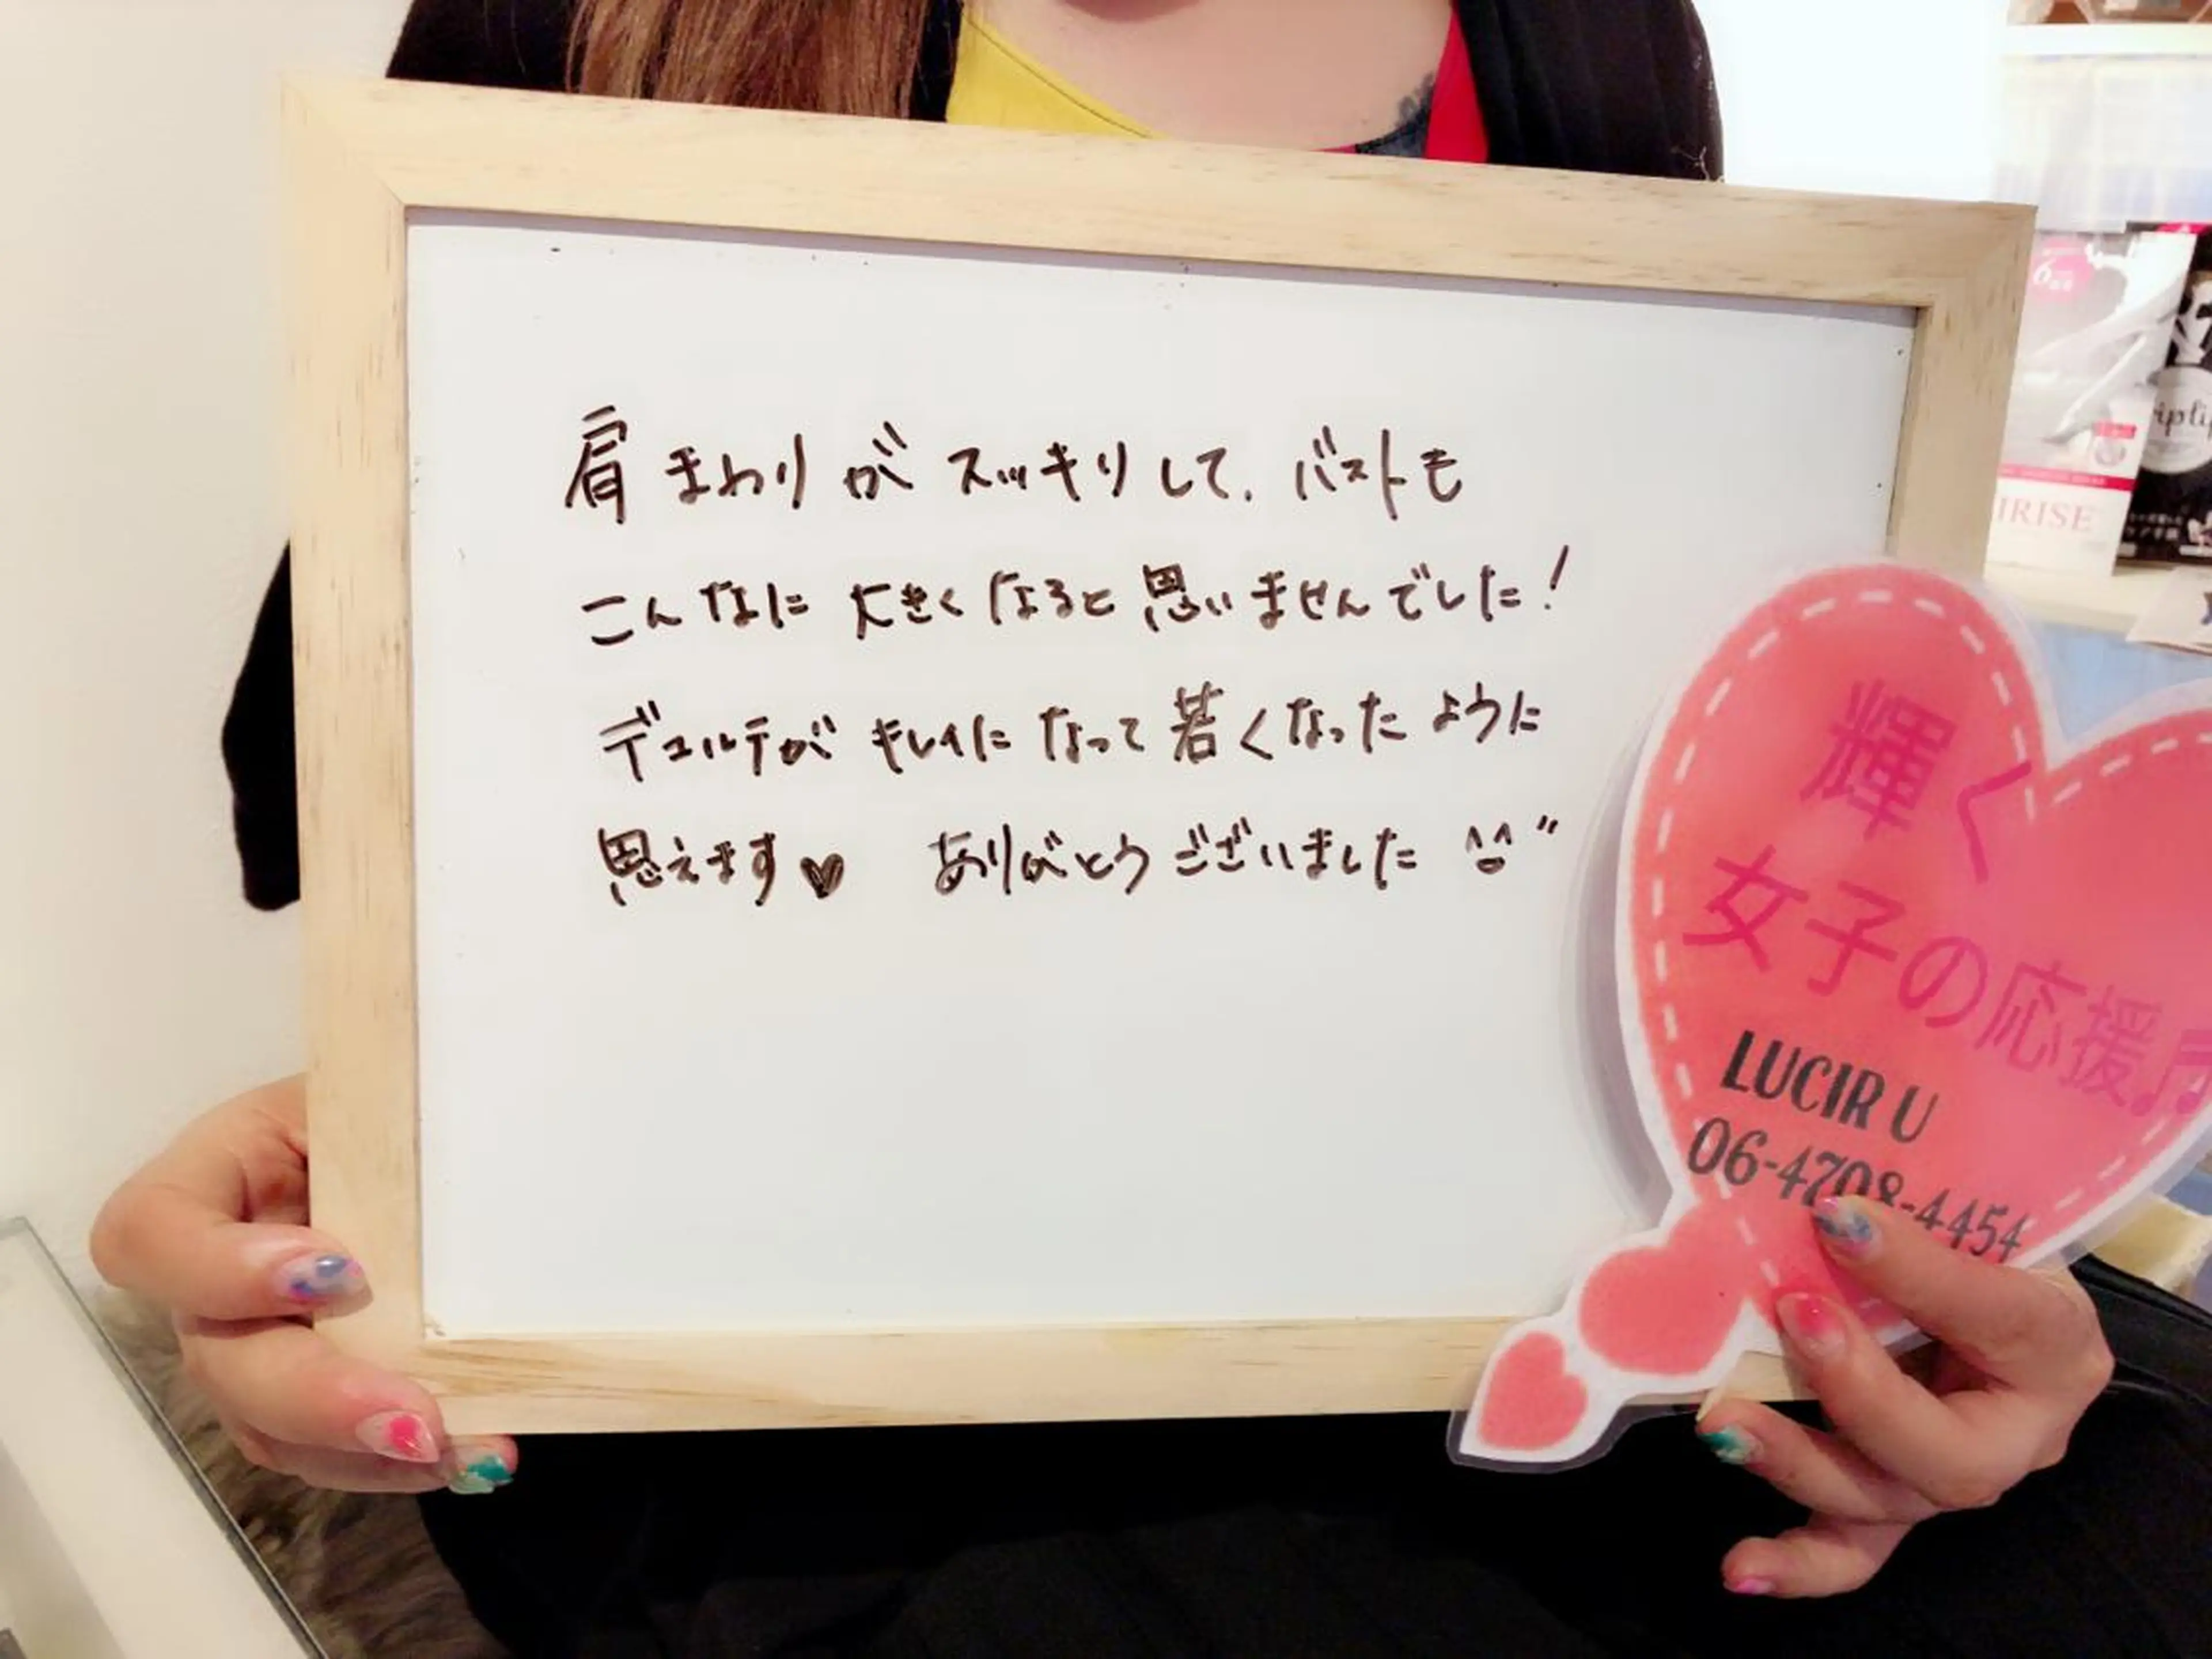 肩まわりがスッキリして、バストも
こんなに大きくなると思いませんでした!
デコルテがキレイになって若くなったように
思えます♥ ありがとうございました ^^"
輝く
女子の応援♬
LUCIR U
06-4708-4454
6
IRISE